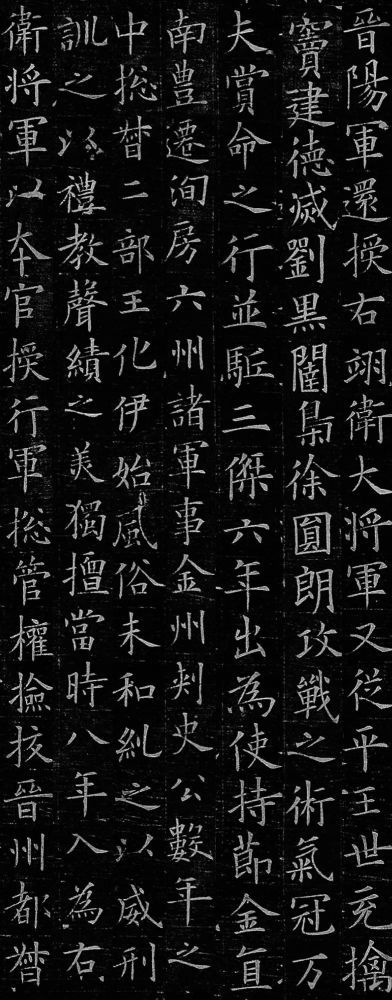 晉陽軍還授右翊衛大將軍又從平王世充擒
竇建德滅劉黑闥梟徐圓朗攻戰之術氣冠万
夫賞命之行並駈三傑六年出為使持節金直
南豊遷洵房六州諸軍事金州刾史公數年之
中揔督二部王化伊始風俗未和糺之以威刑
訓之以禮教聲績之美獨擅當時八年入為右
衛將軍以本官授行軍揔管權撿挍晉州都督